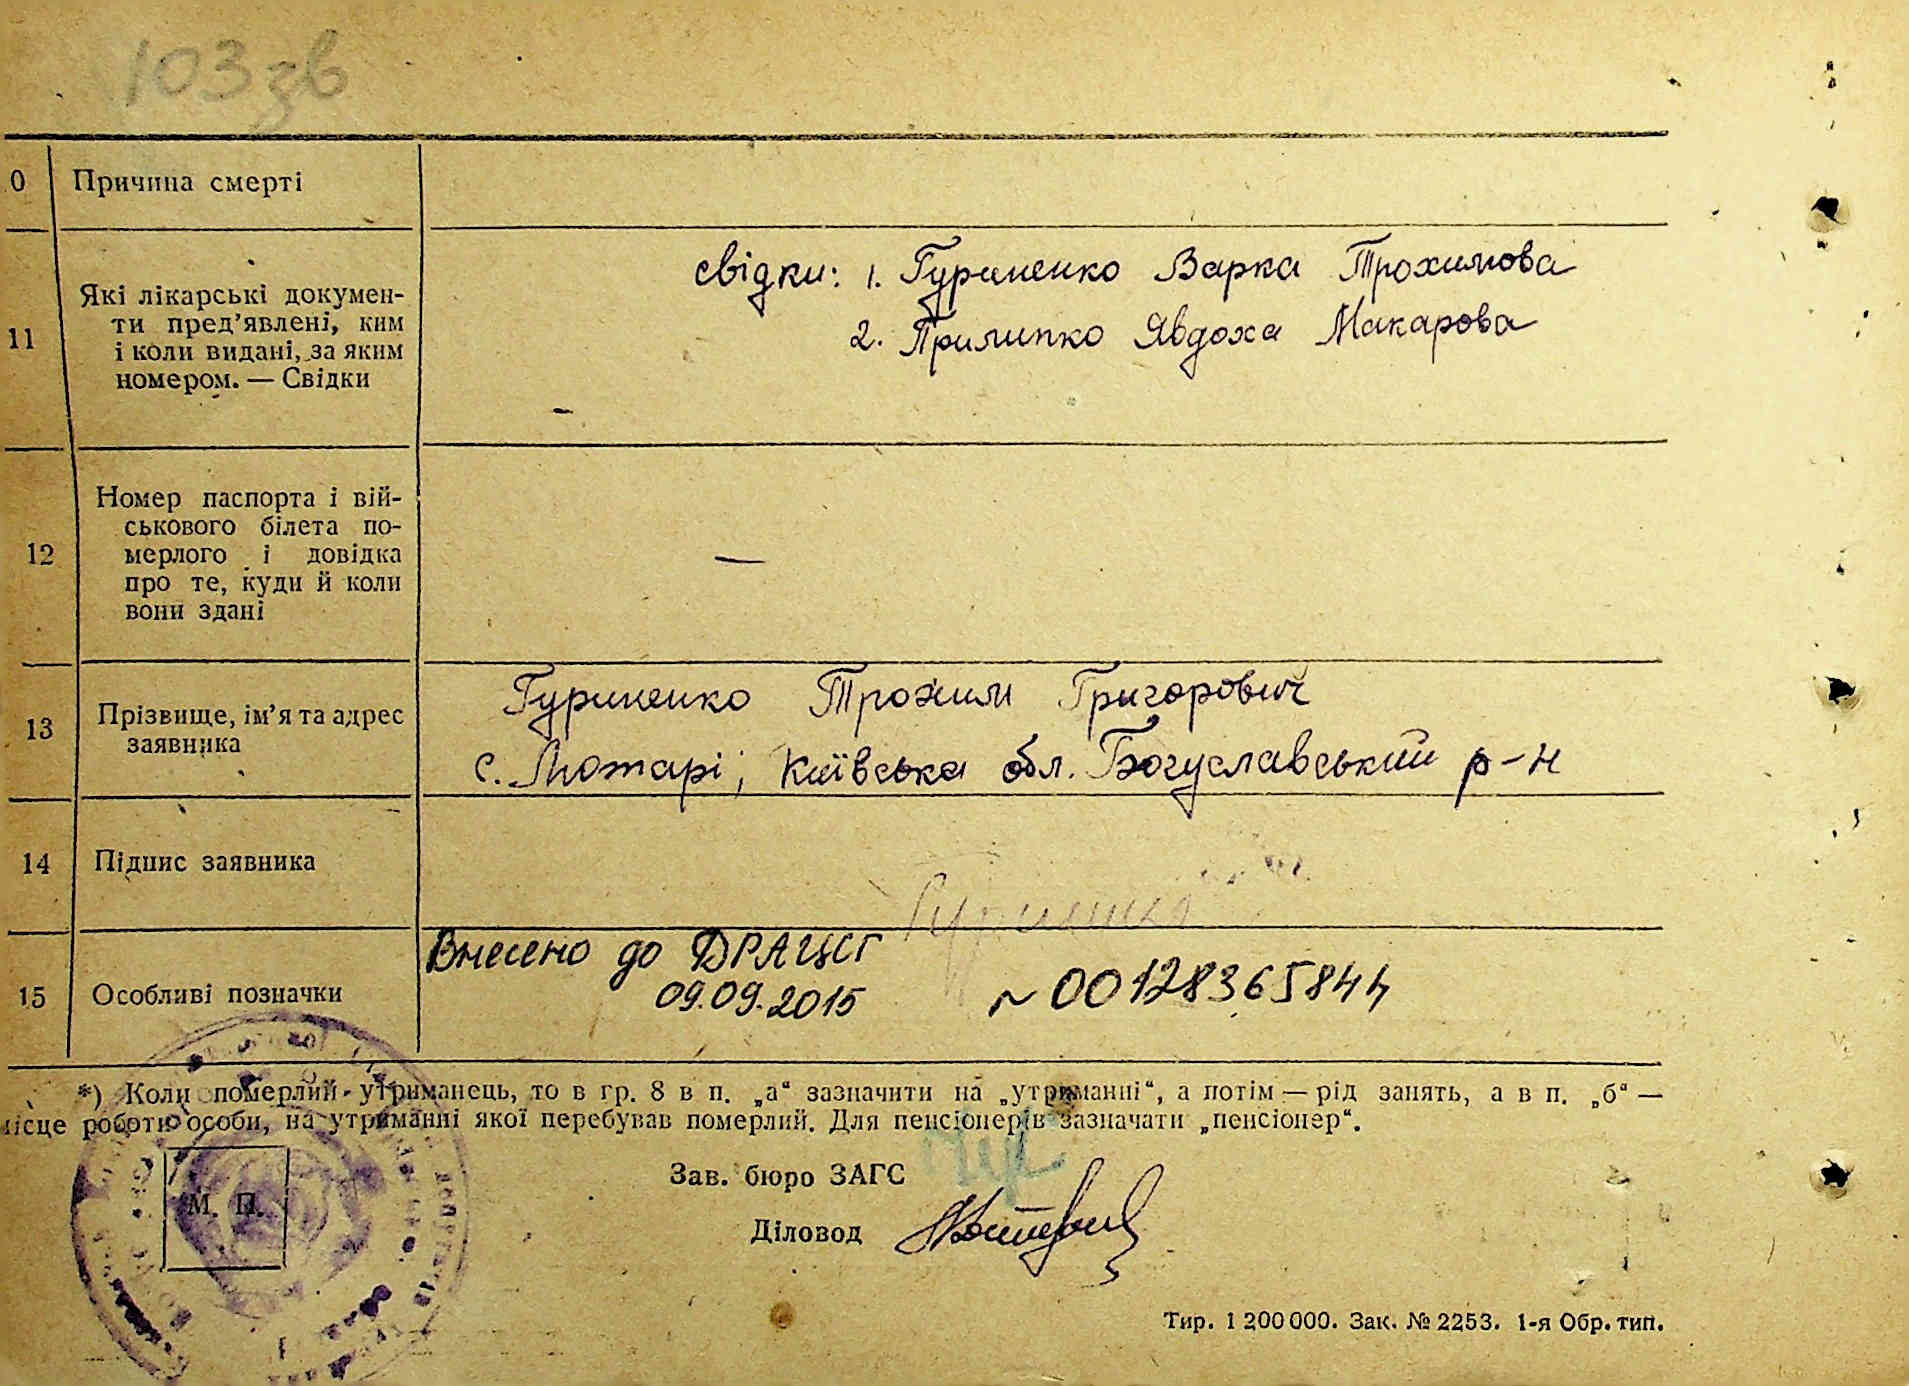 103 зв
0 Причина смерті
11 Які лікарські докумен-
ти пред'явлені, ким
і коли видані, за яким
номером. — Свідки
свідки: 1. Гуриненко Варка Трохимова
2. Прилипко Явдоха Макарова
12 Номер паспорта і вій-
ськового білета по-
мерлого і довідка
про те, куди й коли
вони здані
—
13 Прізвище, ім'я та адрес
заявника
Гуриненко Трохим Григорович
с. Мотарі, Київська обл. Богуславський р-н
14 Підпис заявника
15 Особливі позначки
Внесено до ДРАЦСГ
09.09.2015 ~00128365844
*) Коли померлий утриманець, то в гр. 8 в п. „а“ зазначити на „утриманні“, а потім — рід занять, а в п. „б“ —
місце роботи особи, на утриманні якої перебував померлий. Для пенсіонерів зазначати „пенсіонер“.
М. П.
Зав. бюро ЗАГС
Діловод
Тир. 1 200 000. Зак. № 2253. 1-я Обр. тип.